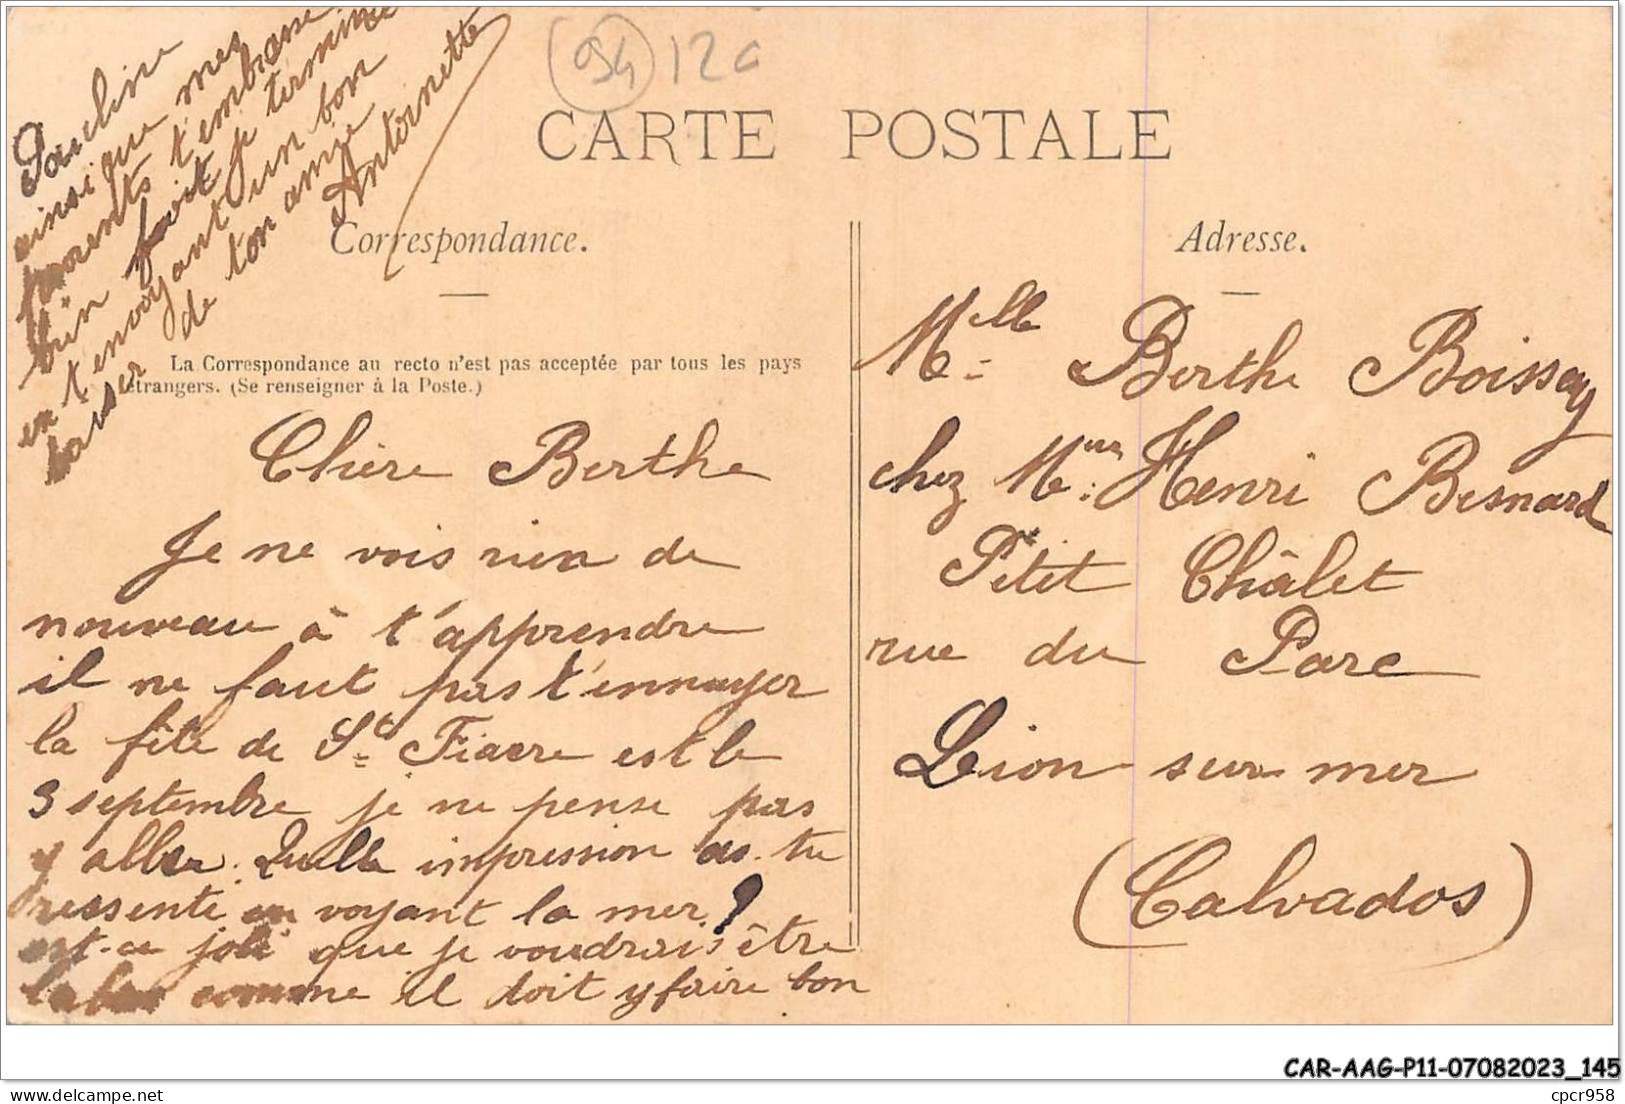 94 12c
CARTE POSTALE
Correspondance.
Adresse.
La Correspondance au recto n'est pas acceptée par tous les pays
étrangers. (Se renseigner à la Poste.)
Chère Berthe
Je ne vois rien de
nouveau à t'apprendre
il ne faut pas t'ennuyer
la fête de St Fiacre est le
3 septembre je ne pense pas
y aller. Quelle impression as-tu
ressenti en voyant la mer ?
est-ce joli que je voudrais être
labas comme il doit y faire bon
Pauline
ainsi que mes
parents t'embrasse
bien fort je termine
en t'envoyant un bon
baiser de ton amie
Antoinette
Mlle Berthe Boissay
chez Mme Henri Besnard
Petit Châlet
rue du Parc
Lion sur mer
(Calvados)
CAR-AAG-P11-07082023_145
cpcr958